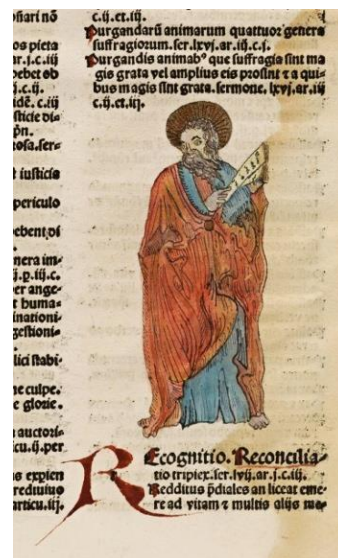 oñari nõ
os pieta
ar.j.c.iij
oebet ob
j.c.ij.
idẽ. c.iij
sticie di⸗
p̃n.
rosa.ser⸗
t iusticia
periculo
ebent di
nera im⸗
ij.p.iij.c.
er ange⸗
t huma⸗
inationi⸗
gestioni⸗
lici stabi⸗
ne culpe.
e glorie.
auctori⸗
cu.ij.per
s expien
articu.iij.
c.ij.et.iij.
Purgandarũ animarum quattuor genera
suffragiorum.ser.lxvj.ar.iij.c.j.
Purgandis animabꝰ que suffragia sint ma
gis grata vel amplius eis prosint ⁊ a qui⸗
bus magis sint grata. sermone. lxvj.ar.iij
c.ij.et.iij.
Recognitio. Reconcilia⸗
tio triplex.ser.lvij.ar.j.c.iij.
Redditus p̃diales an liceat eme⸗
re ad vitam ⁊ multis alijs mo⸗